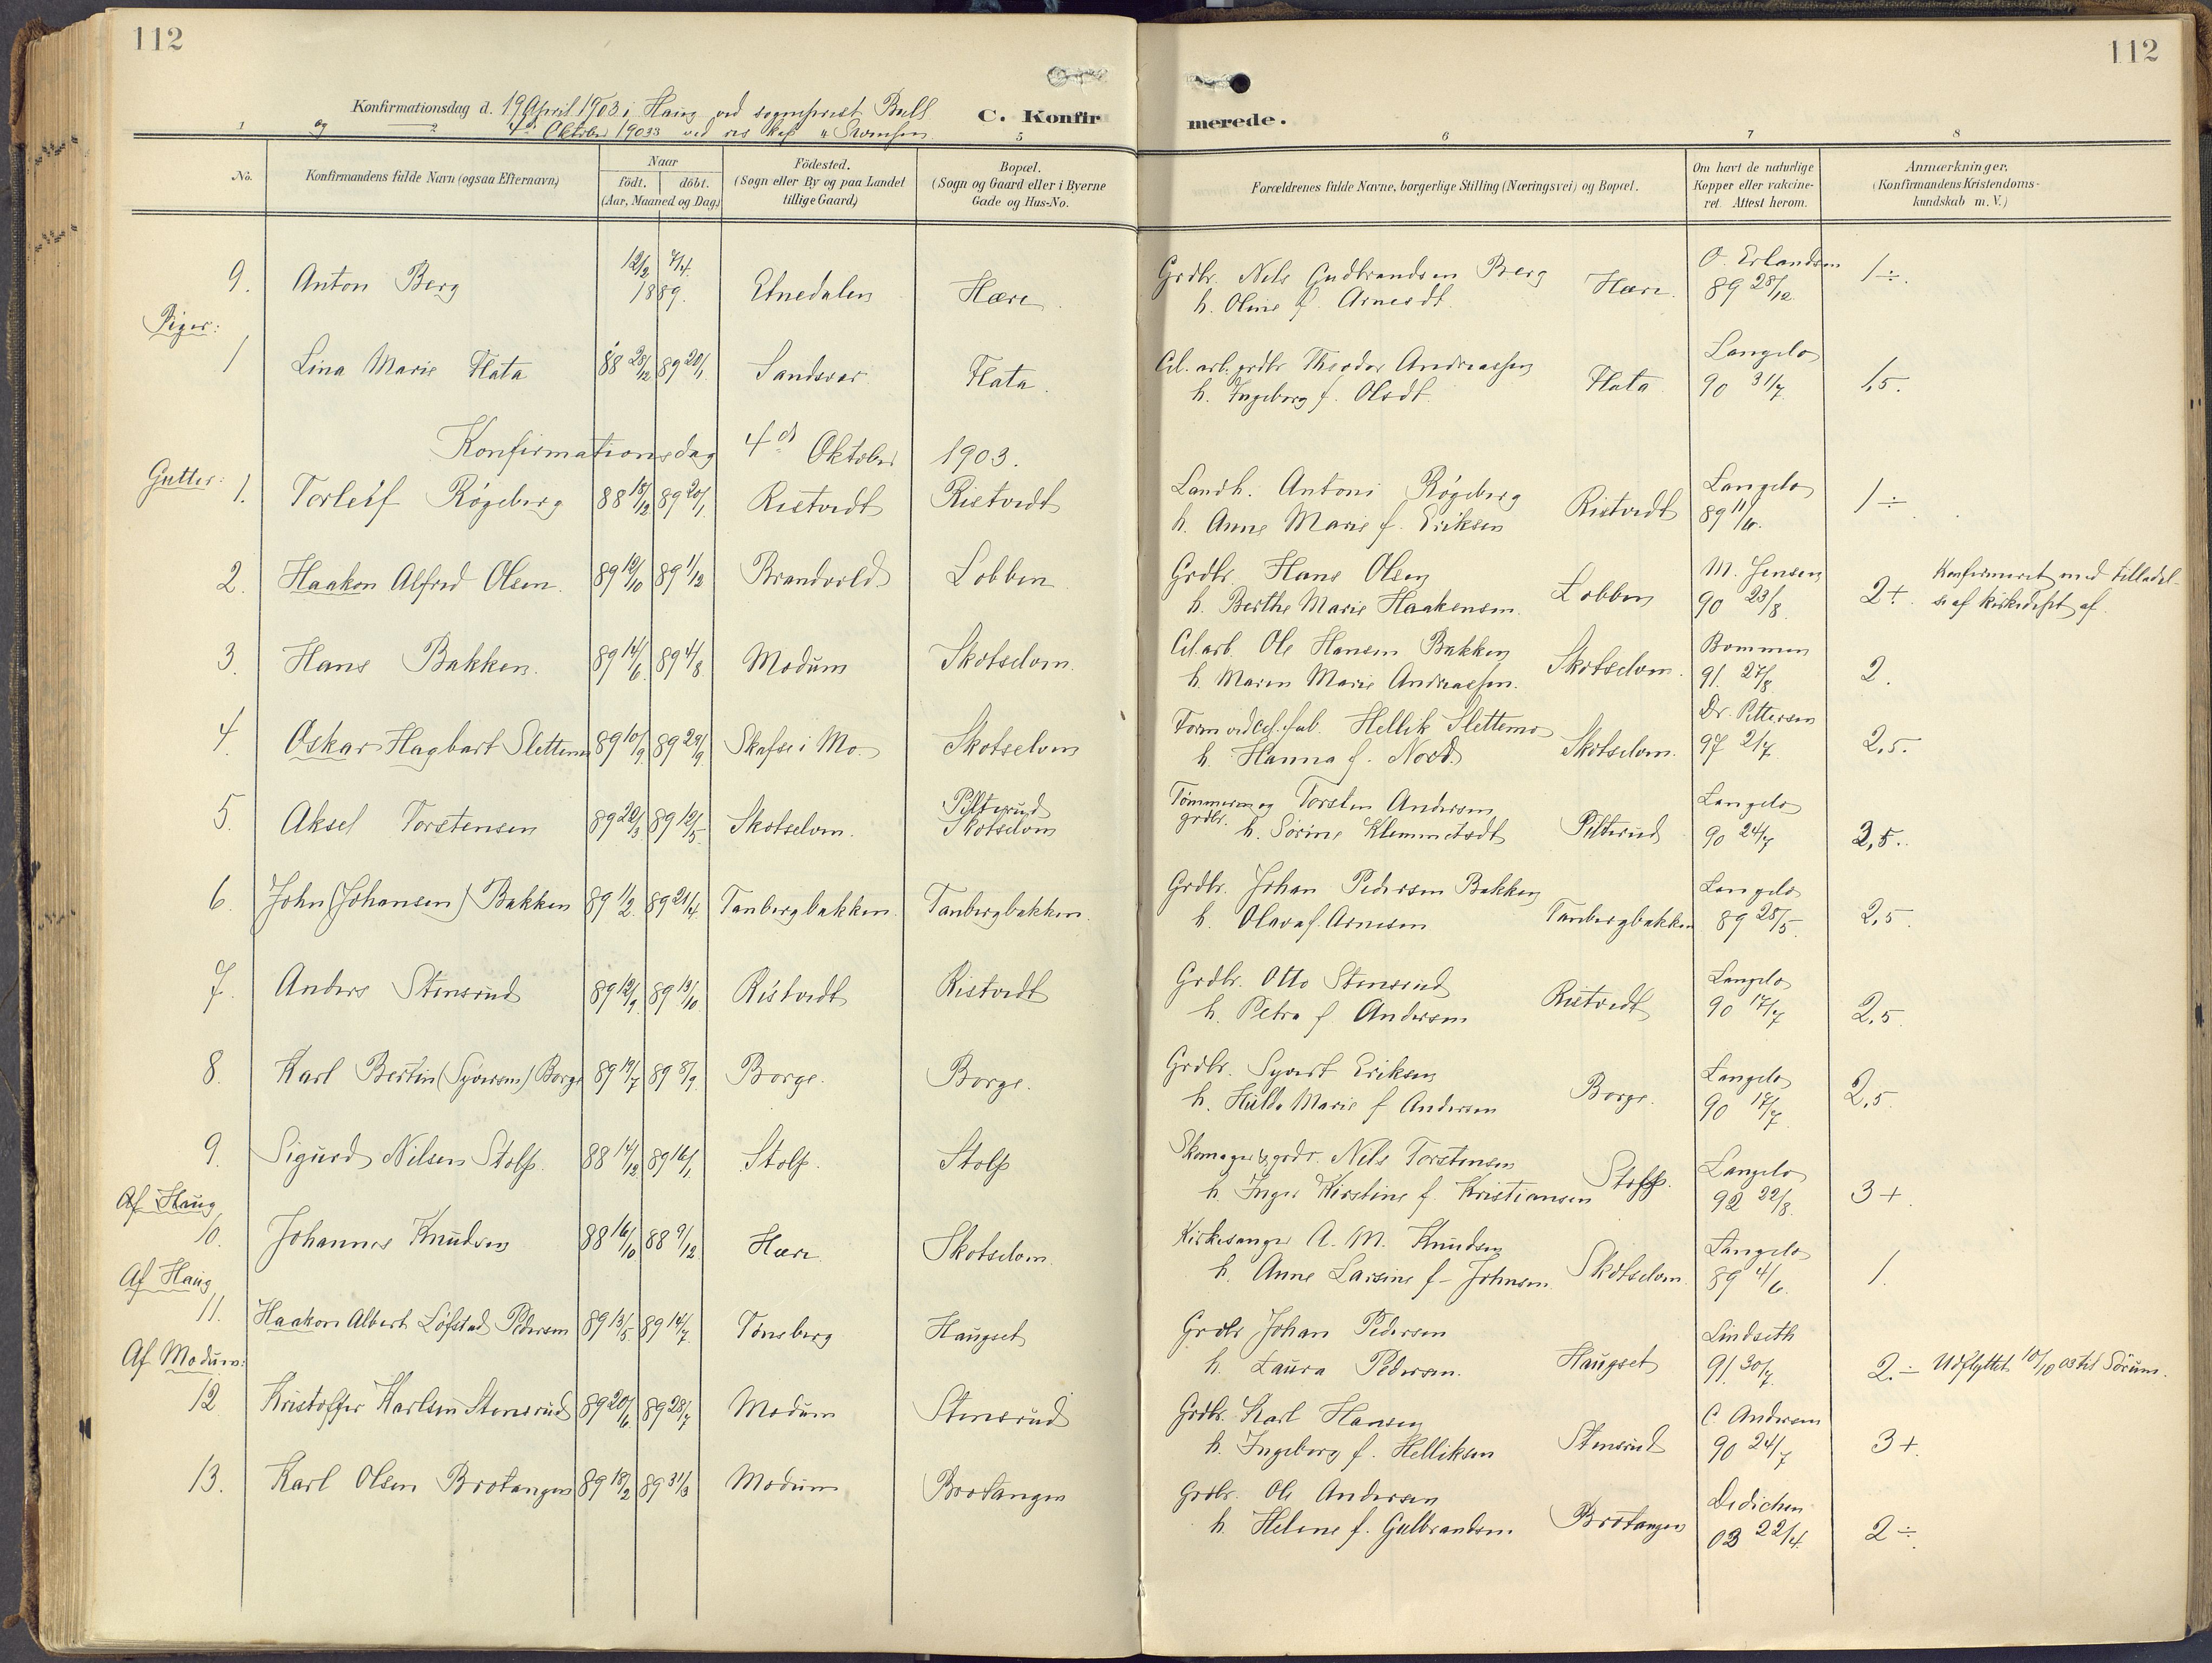 112
112
Konfirmationsdag d. 19 April 1903 i Haug ved sogneprest Bull
og 4de Oktober 1903 ved res. kap.
C. Konfirmerede.
1 2 5 6 7 8
No. Konfirmandens fulde Navn (ogsaa Efternavn) Naar födt. döbt. (Aar, Maaned og Dag) Födested. (Sogn eller By og paa Landet tillige Gaard) Bopæl. (Sogn og Gaard eller i Byerne Gade og Hus-No. Forældrenes fulde Navne, borgerlige Stilling (Næringsvei) og Bopæl. Om havt de naturlige Kopper eller vakcineret. Attest herom. Anmærkninger. (Konfirmandens Kristendomskundskab m. V.)
9. Anton Berg 12/2 7/4 1889. Etnedalen Hære. Grdbr. Nils Gudbrandsen Berg Hære. O. Erlandsen 1÷.
h. Oline f. Arnesdt. 89 28/12.
Piger:
1 Lina Marie Flata 88 28/12 89 20/1. Sandsvær Flata. Cel. arb. grdbr Theodor Andreassen Flata Langelo 1,5.
h. Ingeborg f. Olsdt. 90 31/7
Konfirmationsdag 4de Oktober 1903.
Gutter:
1. Torleif Røgeberg 88 18/12 89 20/1. Ristvedt Ristvedt Landh. Antoni Røgeberg Ristvedt Langelo 1÷
h. Anne Marie f. Eriksen 89 11/6.
2. Haakon Alfred Olsen. 89 12/10 89 1/12 Brandvold Lobben Grdbr. Hans Olsen Lobben M. Jensen 2+. Konfirmeret med tilladel-
h. Berthe Marie Haakensen. 90 23/8 se af kirkedept af.
3. Hans Bakken. 89 14/6 89 4/8 Modum Skotselven. Cel arb. Ole Hansen Bakken Skotselven. Bommen 2.
h. Maren Marie Andreassen. 91. 27/8
4. Oskar Hagbart Slettemo 89 10/9. 89 29/9. Skafse i Mo. Skotselven Form. ved cel. fab. Hellik Slettemo Skotselven. Dr. Pettersen 2,5.
h. Hanna f. Nord. 97 2/7
5. Aksel Torstensen 89 22/3 89 12/5 Skotselven. Pilterud Skotselven Tømmerm. og grdbr. Torsten Andersen Pilterud Langelo 2,5.
h. Sørine Klemmetsdt 90 24/7
6. John (Johansen) Bakken 89 1/2. 89 21/4. Tanbergbakken. Tanbergbakken. Grdbr. Johan Pedersen Bakken Tanbergbakken Langelo 2,5.
h. Olava f. Arnesen 89 28/5.
7. Anders Stensrud 89 12/9. 89 13/10 Ristvedt Ristvedt Grdbr. Otto Stensrud Ristvedt Langelo 2,5.
h. Petra f. Andersen 90 17/7
8. Karl Bertin (Syversen) Borge 89 19/7 89 8/9. Borge. Borge. Grdbr. Syvert Eriksen Borge. Langelo 2,5.
h. Hulda Marie f. Andersen 90 17/7
9. Sigurd Nilsen Stolp. 88 14/12 89 16/1. Stolp. Stolp Skomager & grdbr. Nils Torstensen Stolp. Langelo 3+.
h. Inger Kirstine f. Kristiansen 92 22/8.
Af Haug
10. Johannes Knudsen 88 16/10 88 9/12. Hære. Skotselven. Kirkesanger A. M. Knudsen Skotselven. Langelo 1.
h. Anne Larsine f. Johnsen 89 4/6.
Af Haug
11. Haakon Albert Løfstad Pedersen 89 13/5 89 14/7. Tønsberg Haugset Grdbr Johan Pedersen Haugset Lindseth 2.÷ Udflyttet 10/10 03 til Sörum.
h. Laura Pedersen. 91. 30/7.
Af Modum:
12 Kristoffer Karlsen Stensrud 89 20/6 89 28/7 Modum Stensrud Grdbr. Karl Hansen Stensrud C. Andersen 3+.
h. Ingeborg f. Helliksen 90 24/7
13. Karl Olsen Brotangen 89 18/2 89 31/3 Modum Brotangen Grdbr. Ole Andersen Brotangen Dedichen 2÷.
h. Helene f. Gulbrandsen. 03 22/4.